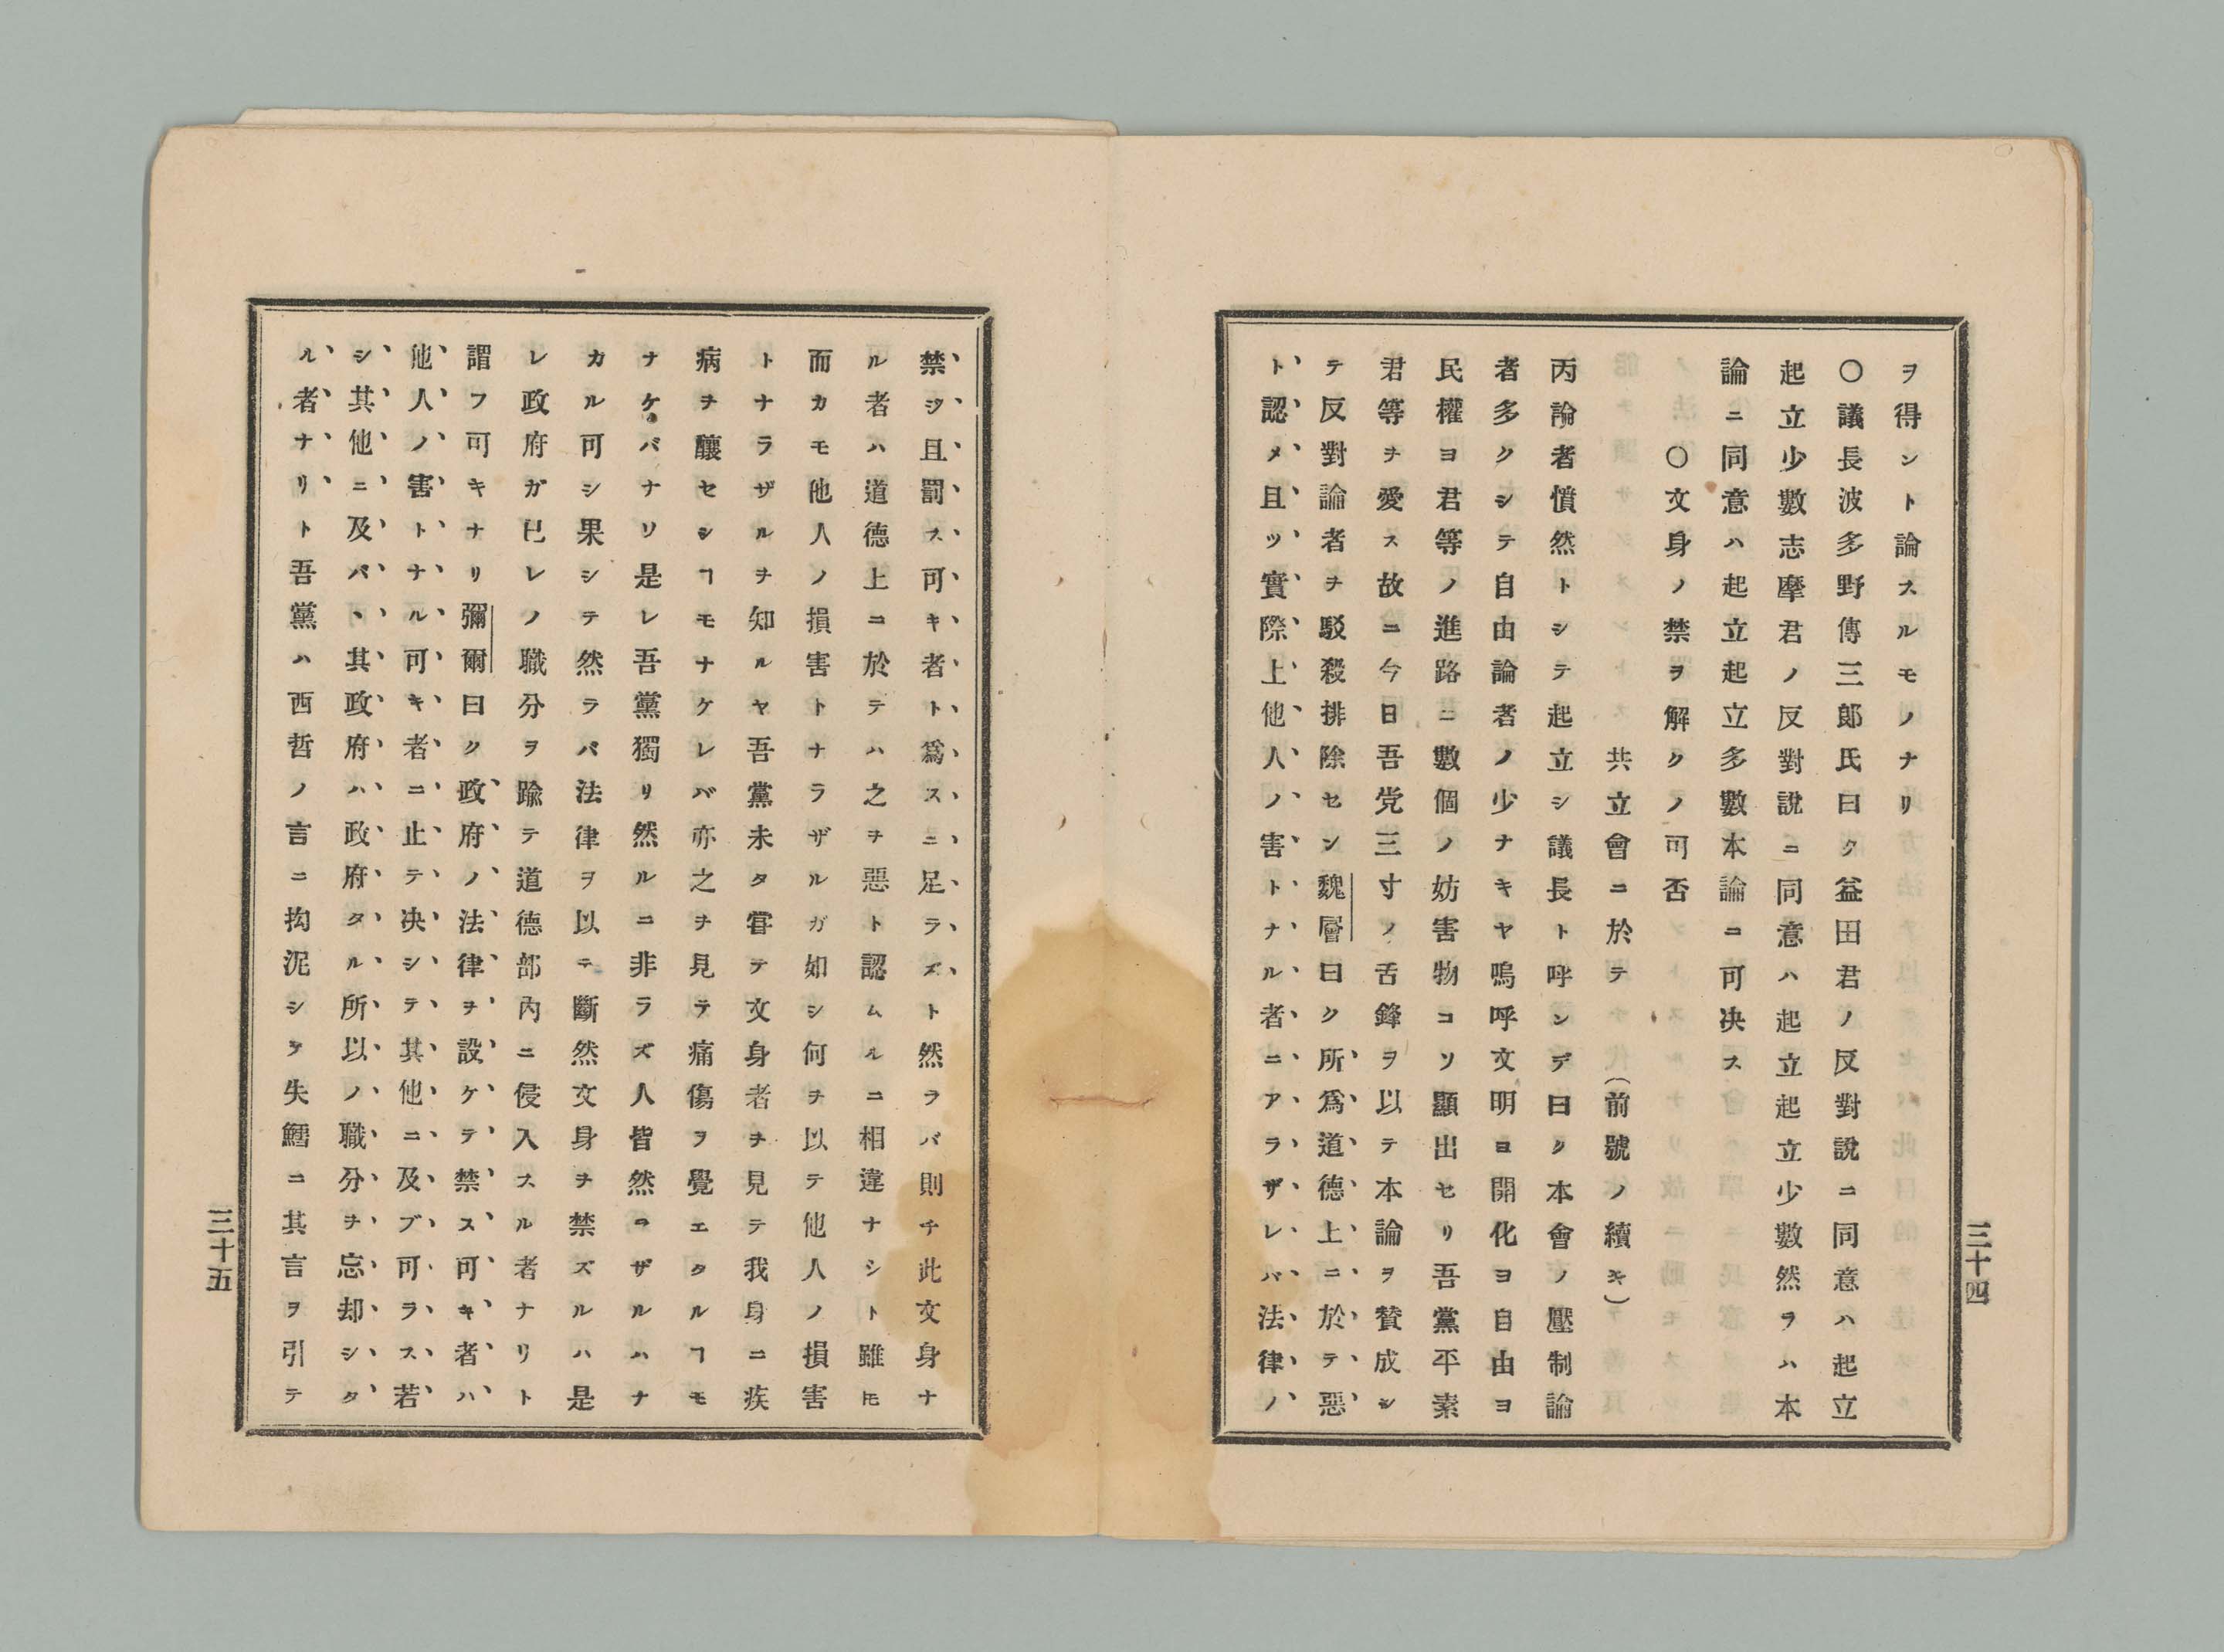 ヲ得ント論スルモノナリ
〇議長波多野傳三郎氏曰ク益田君ノ反對說ニ同意ハ起立
起立少數志摩君ノ反對說ニ同意ハ起立起立少數然ラハ本
論ニ同意ハ起立起立多數本論ニ可决ス
〇文身ノ禁ヲ解クノ可否
共立會ニ於テ（前號ノ續キ）
丙論者憤然トシテ起立シ議長ト呼ンデ曰ク本會ノ壓制論
者多クシテ自由論者ノ少ナキヤ嗚呼文明ヨ開化ヨ自由ヨ
民權ヨ君等ノ進路ニ數個ノ妨害物コソ顯出セリ吾黨平素
君等ヲ愛ス故ニ今日吾党三寸ノ舌鋒ヲ以テ本論ヲ賛成シ
テ反對論者ヲ駁殺排除セン魏層曰ク所爲道德上ニ於テ惡
ト認メ且ツ實際上他人ノ害トナル者ニアラザレバ法律ノ
三十四
禁シ且罰ス可キ者ト爲スニ足ラズト然ラバ則チ此文身ナ
ル者ハ道德上ニ於テハ之ヲ惡ト認ムルニ相違ナシト雖𪜈
而カモ他人ノ損害トナラザルガ如シ何ヲ以テ他人ノ損害
トナラザルヲ知ルヤ吾黨未タ甞テ文身者ヲ見テ我身ニ疾
病ヲ釀セシヿモナケレバ亦之ヲ見テ痛傷ヲ覺エタルヿモ
ナケ。バナリ是レ吾黨獨リ然ルニ非ラズ人皆然ラザルハナ
カル可シ果シテ然ラバ法律ヲ以テ斷然文身ヲ禁ズルハ是
レ政府ガ已レノ職分ヲ踰テ道德部內ニ侵入スル者ナリト
謂フ可キナリ彌爾曰ク政府ノ法律ヲ設ケテ禁ス可キ者ハ
他人ノ害トナル可キ者ニ止テ决シテ其他ニ及ブ可ラス若
シ其他ニ及バヽ其政府ハ政府タル所以ノ職分ヲ忘却シタ
ル者ナリト吾黨ハ西哲ノ言ニ拘泥シタ失鱈ニ其言ヲ引テ
三十五